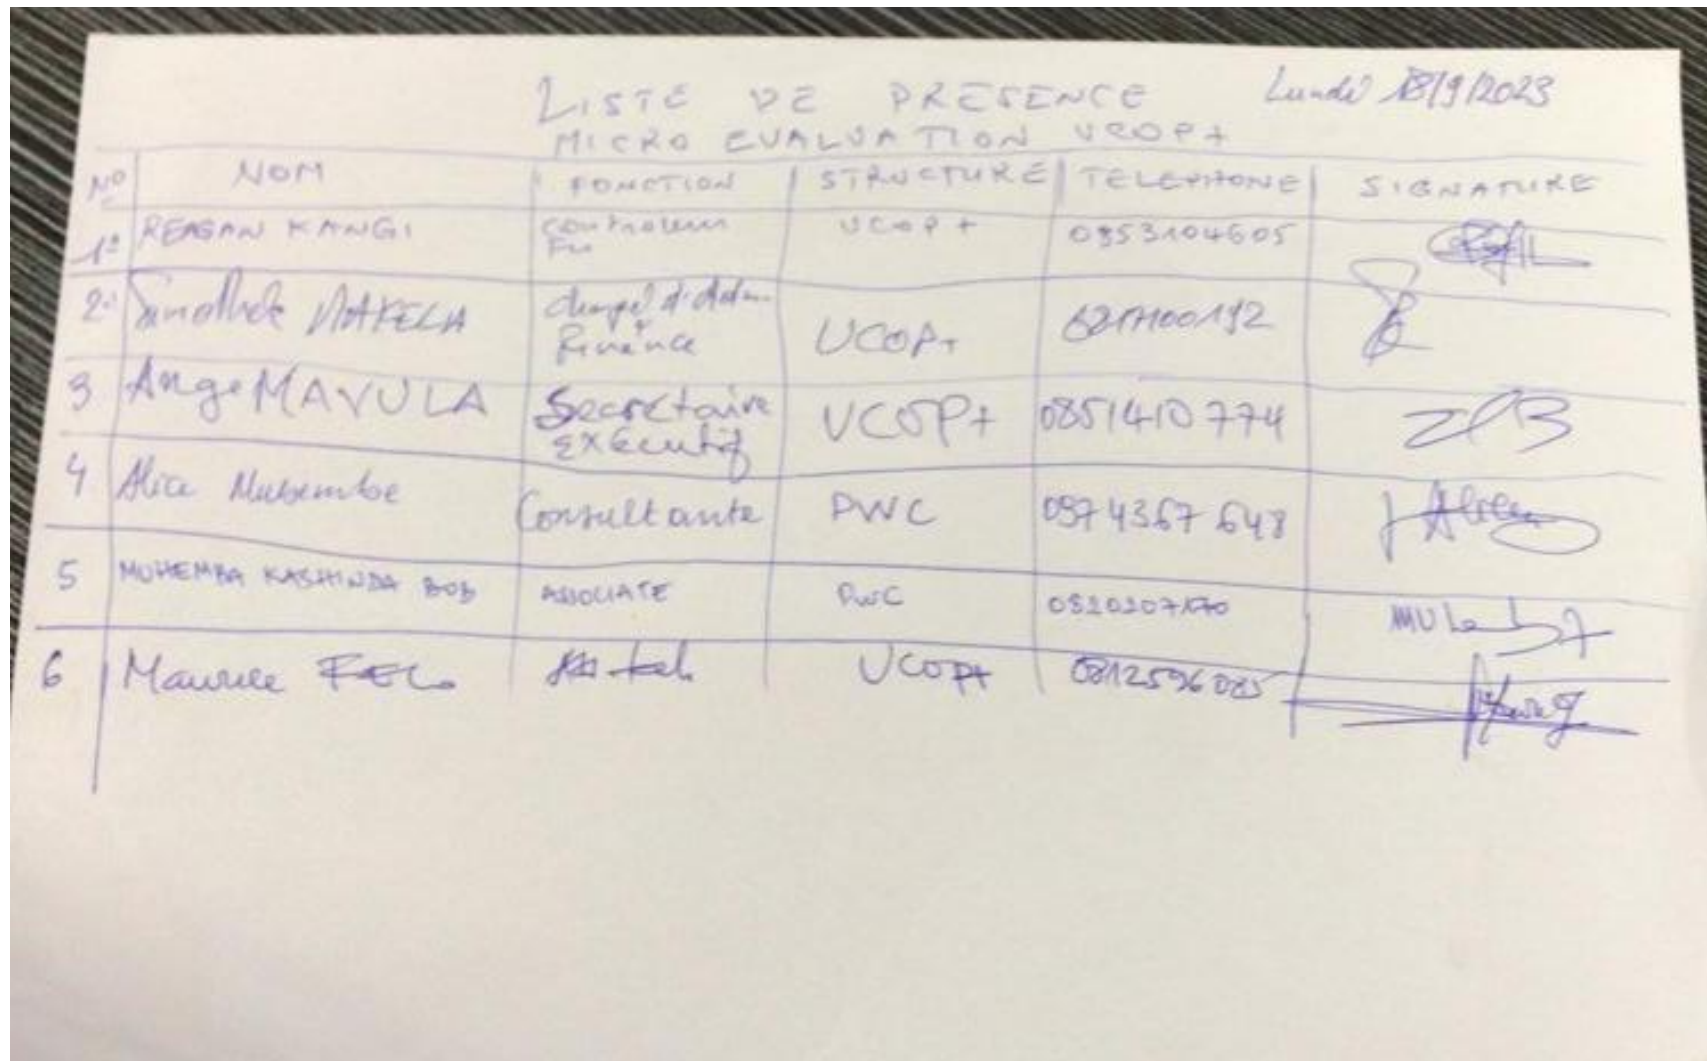 LISTE DE PRESENCE
Lundi 18/9/2023
MICRO EVALUATION UCOP+
No NOM FONCTION STRUCTURE TELEPHONE SIGNATURE
1º REAGAN KANGI Controleur Fin UCOP+ 0853104605
2º MAKELA Finance UCOP+
3 Ange MAVULA Secrétaire exécutif UCOP+ 0851410774
4 Alice Mubembe Consultante PWC 0974367648
5 MUHEMBA KASHINDA BOB ASSOCIATE PwC
6 Maurice UCOP+ 0812596085